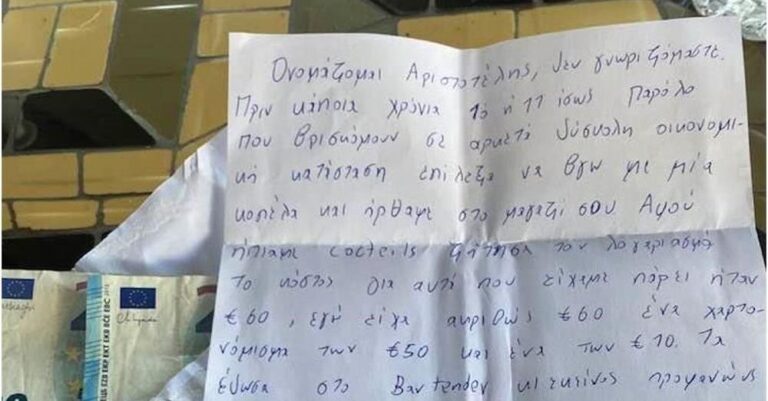 Ονομάζομαι Αριστοτέλης, δεν γνωριζόμαστε.
Πριν κάποια χρόνια 10 ή 11 ίσως παρόλο
που βρισκόμουν σε αρκετά δύσκολη οικονομι-
κή κατάσταση επίλεξα να βγω με μία
κοπέλα και ήρθαμε στο μαγαζί σου. Αφού
ήπιαμε cocteils ζήτησα τον λογαριασμό
το κόστος για αυτά που είχαμε πάρει ήταν
€60, εγώ είχα ακριβώς €60 ένα χαρτο-
νόμισμα των €50 και ένα των €10. Τα
έδωσα στο Bartender κι εκείνος προφανώς
BCE ECB
EKP